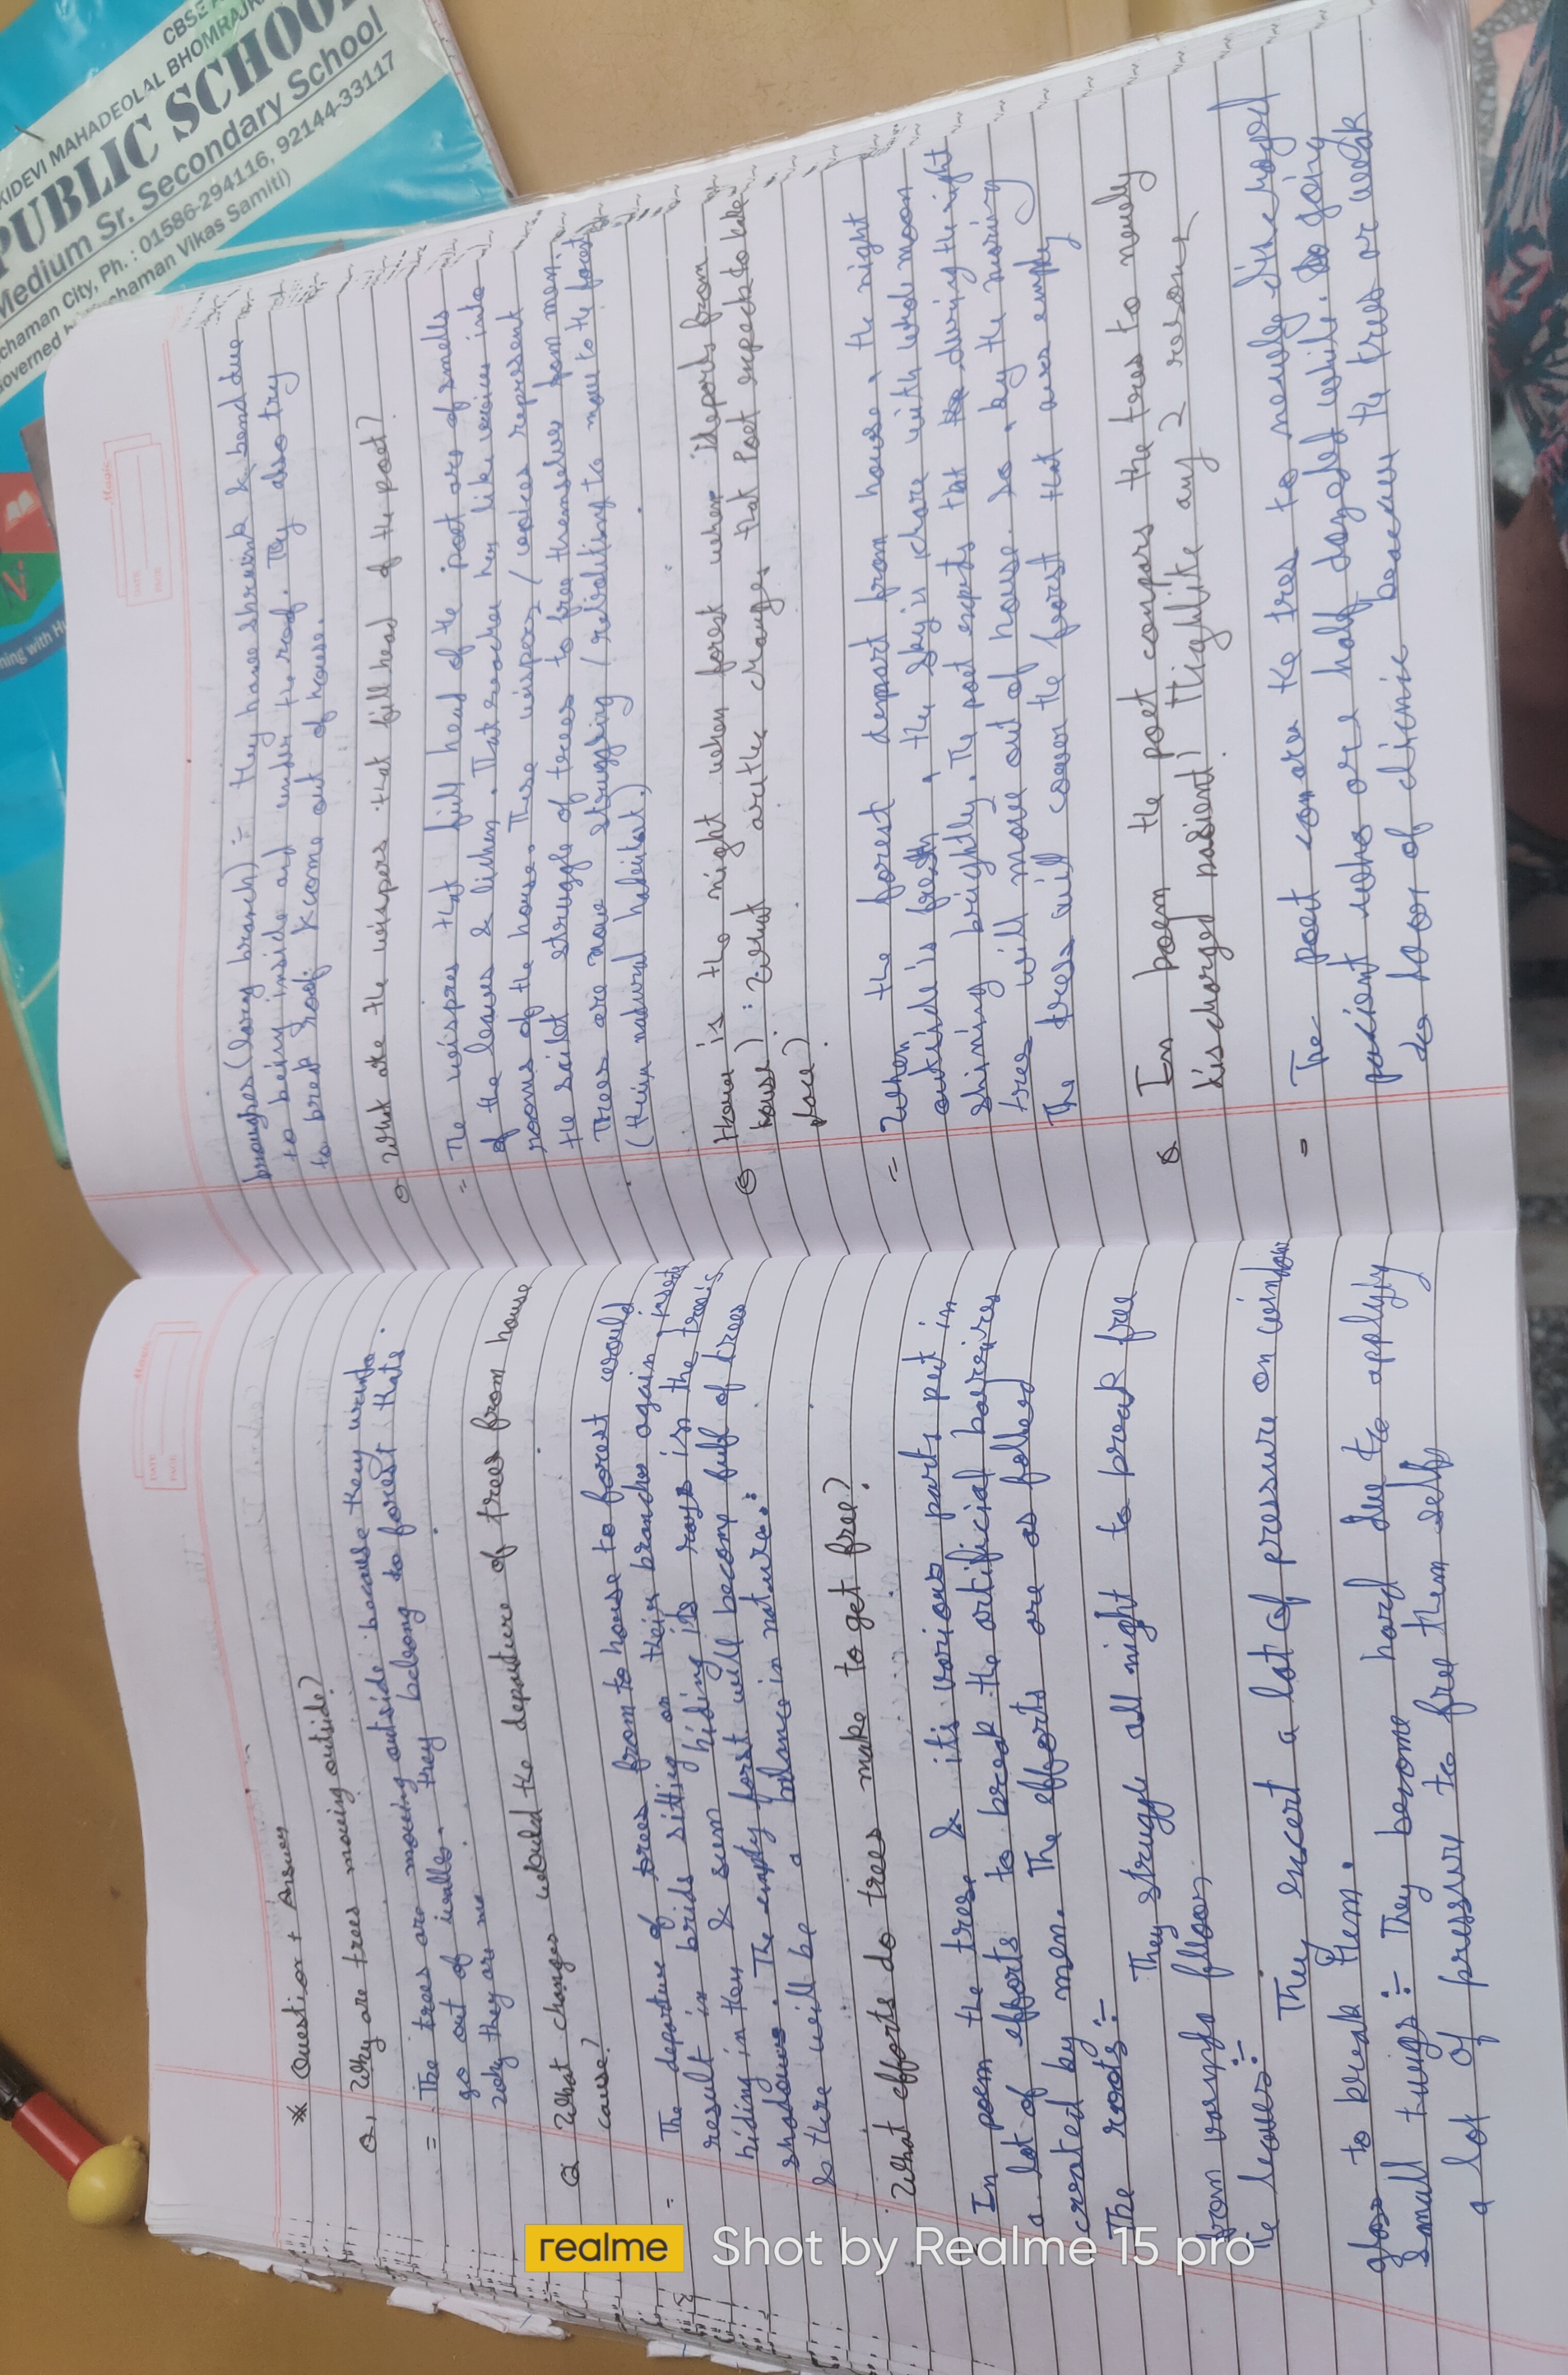 * Question + Answer
Q. Why are trees moving outside?
= The trees are moving outside because they want to
go out of walls. they belong to forest thats
why they are mo
Q What changes would the departure of trees from house
cause?
= The departure of trees from to house to forest would
result in brids sitting on their branches again, insects
hiding in they & sum hiding its rays in the trees
shadows. The empty forst will become full of trees
& there will be a balance in nature.
What efforts do trees make to get free?
= In poem the tres & it's various parts put in
a lot of efforts to break the artificial barrires
created by men. The efforts are as follows
The roots :- They struggle all night to break free
from voranda floor.
The leaves :- They excert a lot of pressure on window
glass to break them.
Small twigs :- They become hard due to applyiy
a lot of pressure to free them selfs
broughes (long branch) :- they have shraink & bend due
to being inside and under the roof. They also try
to brek roof & come out of house.
Q What are the wispers that fill head of the poet?
= The wispres that fill head of the poet are of smells
of the leaves & lichen. That reaches her like voices into
rooms of the house. These wispers / voices represent
the scilt struggle of trees to free themselves from men.
Trees are now struggling / rebialiting to move to the forest
(their natural habitat)
Q How is the night when forest when ideports from
house) : What are the changes that Poet expects to take
place?
= When the forest depart from house, the night
outside is fresh, the sky is chare with whole moon
shining brightly. The poet expets that during the night
tres will move out of house. So, by the moring
The tress will cover the forst that was empty
Q In poem the poet compars the tres to newly
discharged pasient? Highlite any 2 resons
= The poet comare the tres to newly discharged
pacient who are half dazed while going
to door of clienic because the tres or weak
KIDEVI MAHADEOLAL BHOMRAJK
CBSE A
PUBLIC SCHOO
Medium Sr. Secondary School
chaman City, Ph. : 01586-294116, 92144-33117
chaman Vikas Samiti)
realme Shot by Realme 15 pro